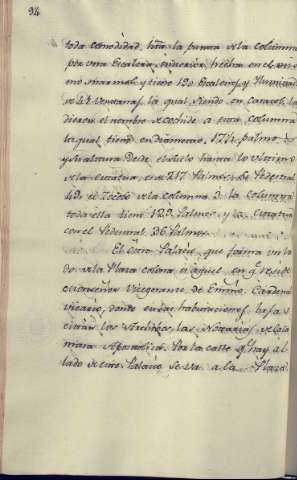 94
toda comodidad, hta. la punta de la columna
por una Escalera interior, hecha en el mis
mo marmol, y tiene 190 Escalones, y Yluminada
de 41 Ventanas, la qual, siendo en Caracol, la
dieron el nombre de Coclide à esta columna
la qual tiene en Diametro, 17½ palmos
y Su altura desde el suelo hasta lo ultimo
de la estatua, es de 217 Palmos, de Pedestal
la columna
toda ella tiene 129 Palmos, y la estatua
con el Pedestal 26 Palmos
El otro Palacio, que forma un la
do de la Plaza colona es aquel en qe. reside
Monseñor Vicegerente de Emmo. Cardenal
Vicario, donde en las habitaciones bajas
estan los Archivos, las Notarias de la Ca
mara Apostolica. Por la calle qe. hay al
lado de este Palacio se va a la Plaza